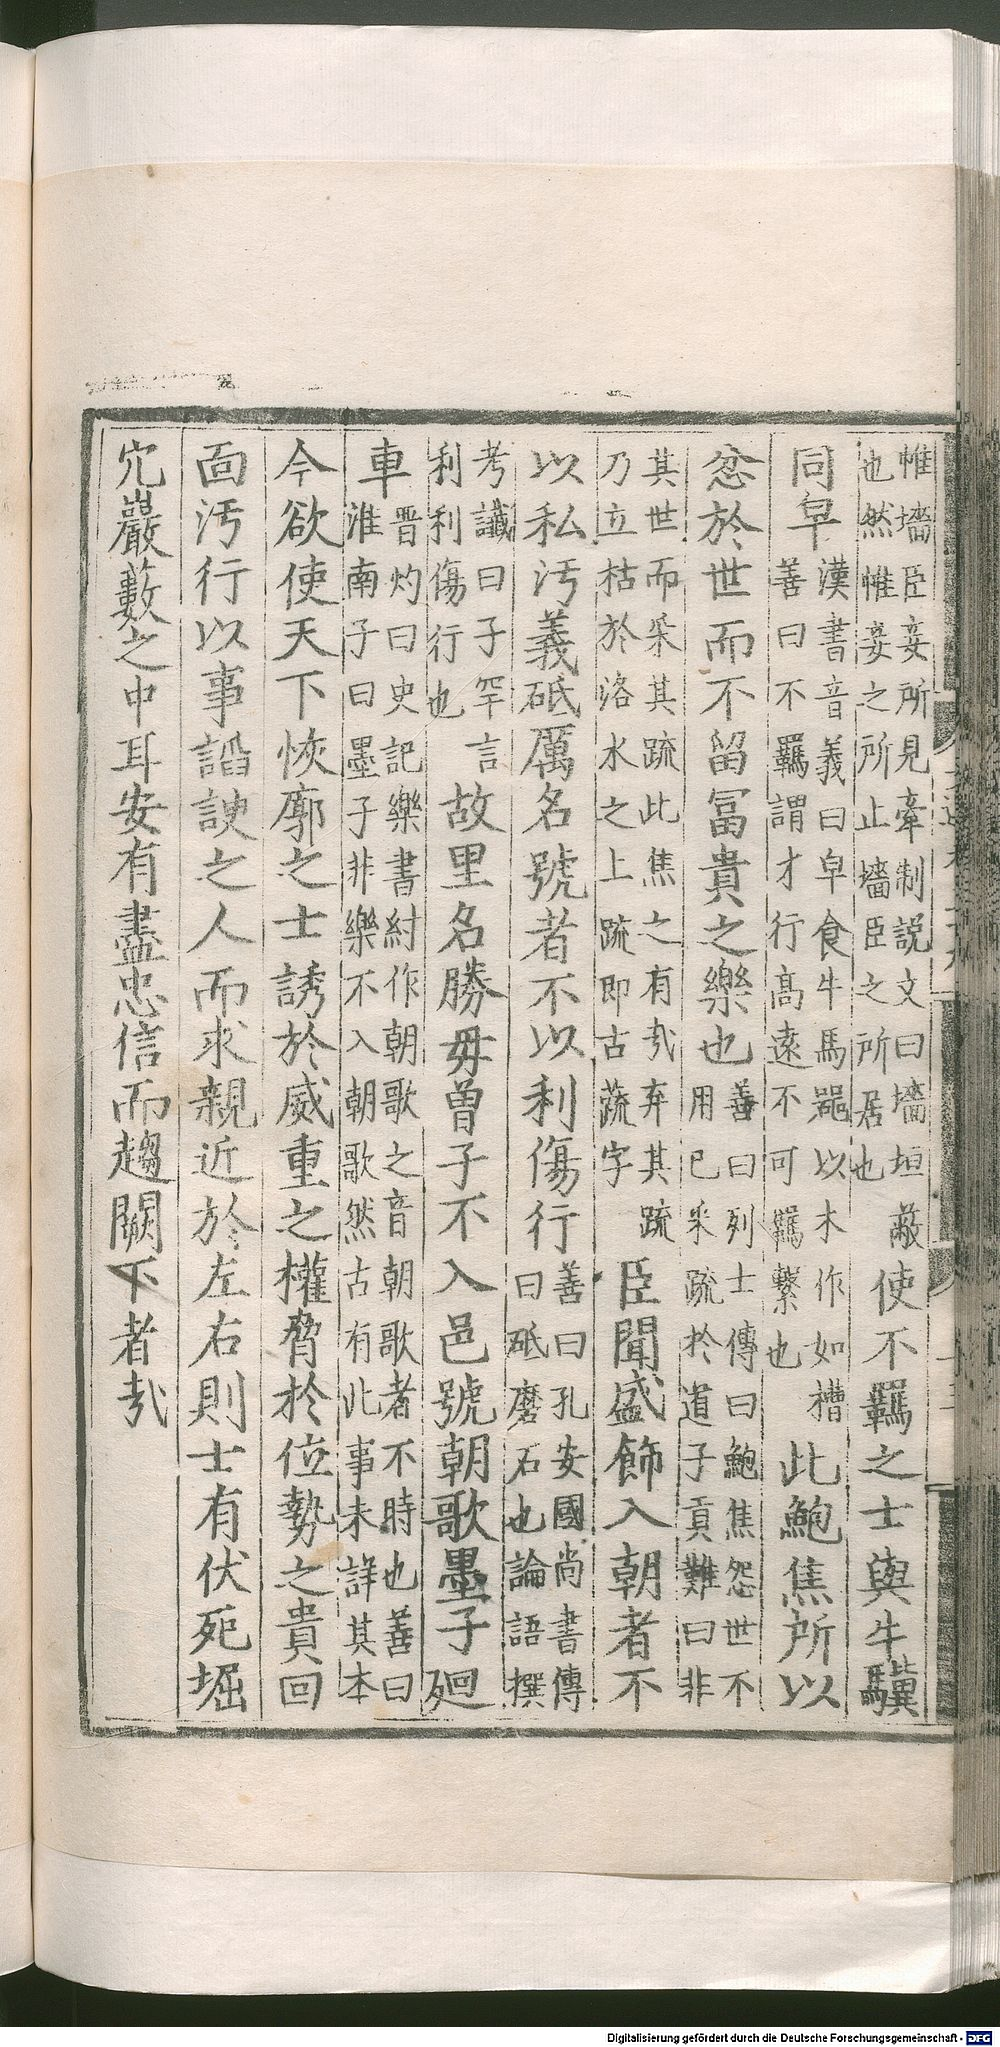 帷墻臣妾所見牽制説文曰墻垣蔽
也然帷妾之所止墻臣之所居也
使不羈之士與牛驥
同皁
漢書音義曰皁食牛馬噐以木作如槽
善曰不羈謂才行髙遠不可羈繫也
此鮑焦所以
忿於世而不留冨貴之樂也
善曰列士傳曰鮑焦怨世不
用已采蔬於道子貢難曰非
其世而采其蔬此焦之有㢤弃其蔬
乃立枯於洛水之上蔬即古蔬字
臣聞盛飾入朝者不
以私汚義砥厲名號者不以利傷行
善曰孔安國尚書傳
曰砥磨石也論語撰
考讖曰子罕言
利利傷行也
故里名勝毋曾子不入邑號朝歌墨子廻
車
晋灼曰史記樂書紂作朝歌之音朝歌者不時也善曰
淮南子曰墨子非樂不入朝歌然古有此事未詳其本
今欲使天下恢廓之士誘於威重之權脅於位勢之貴回
面汚行以事謟諛之人而求親近於左右則士有伏死堀
穴巖藪之中耳安有盡忠信而趨闕下者㢤
Digitalisierung gefördert durch die Deutsche Forschungsgemeinschaft - DFG